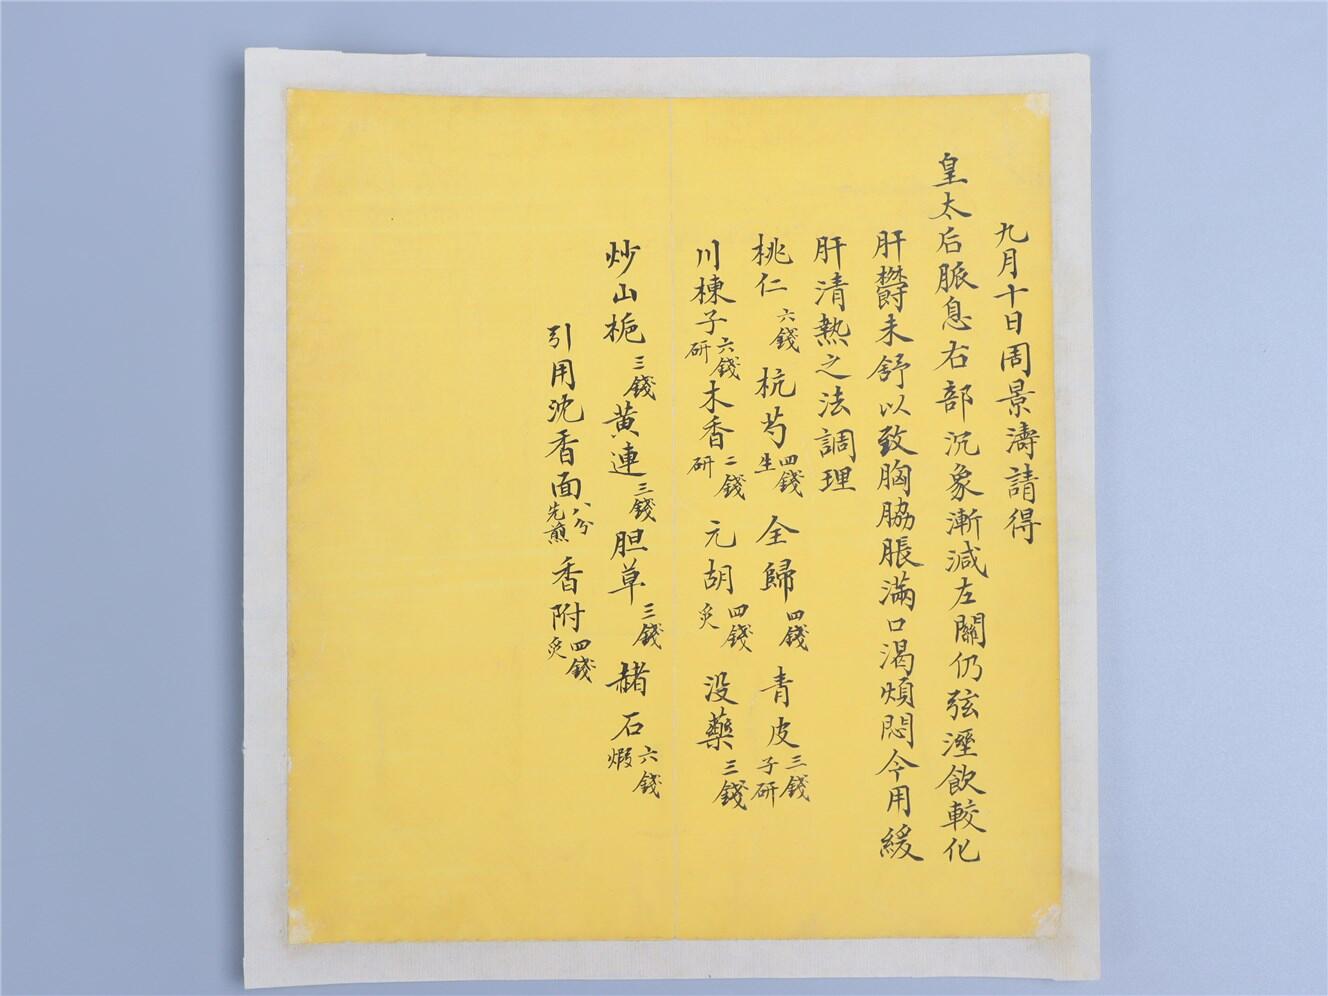 九月十日周景濤請得
皇太后脈息右部沉象漸減左關仍弦溼飲較化
肝鬱未舒以致胸脇脹滿口渴煩悶今用緩
肝清熱之法調理
桃仁六錢 杭芍四錢生 全歸四錢 青皮三錢子研
川楝子六錢研 木香二錢研 元胡四錢炙 没藥三錢
炒山梔三錢 黄連三錢 胆草三錢 赭石六錢煆
引用沈香面八分先煎 香附四錢炙